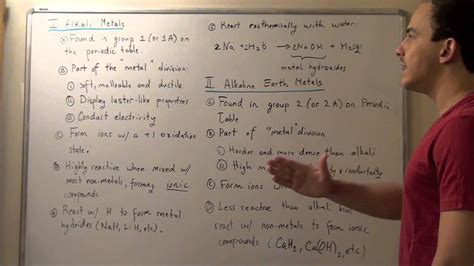 I Alkali Metals
Ⓐ Found in group 1 (or 1A) on
the periodic table.
Ⓑ Part of the "metal" division
① Soft, malleable and ductile
② Display luster-like properties
③ Conduct electricity
Ⓒ Form ions w/ a +1 oxidation
state.
Ⓓ Highly reactive when mixed w/
most non-metals, forming ionic
compounds.
Ⓔ React w/ H to form metal
hydrides (NaH, LiH, etc).
React exothermically with water.
2Na + 2H₂O → 2NaOH + H₂(g)
metal hydroxides
II Alkaline Earth Metals
Ⓐ Found in group 2 (or 2A) on Periodic
Table
Ⓑ Part of "metal" division
Harder and more dense than alkali
High conductivity
Ⓒ Form ions
Ⓓ Less reactive than alkali but
react w/ non-metals to form ionic
compounds (CaH₂, Ca(OH)₂, etc)